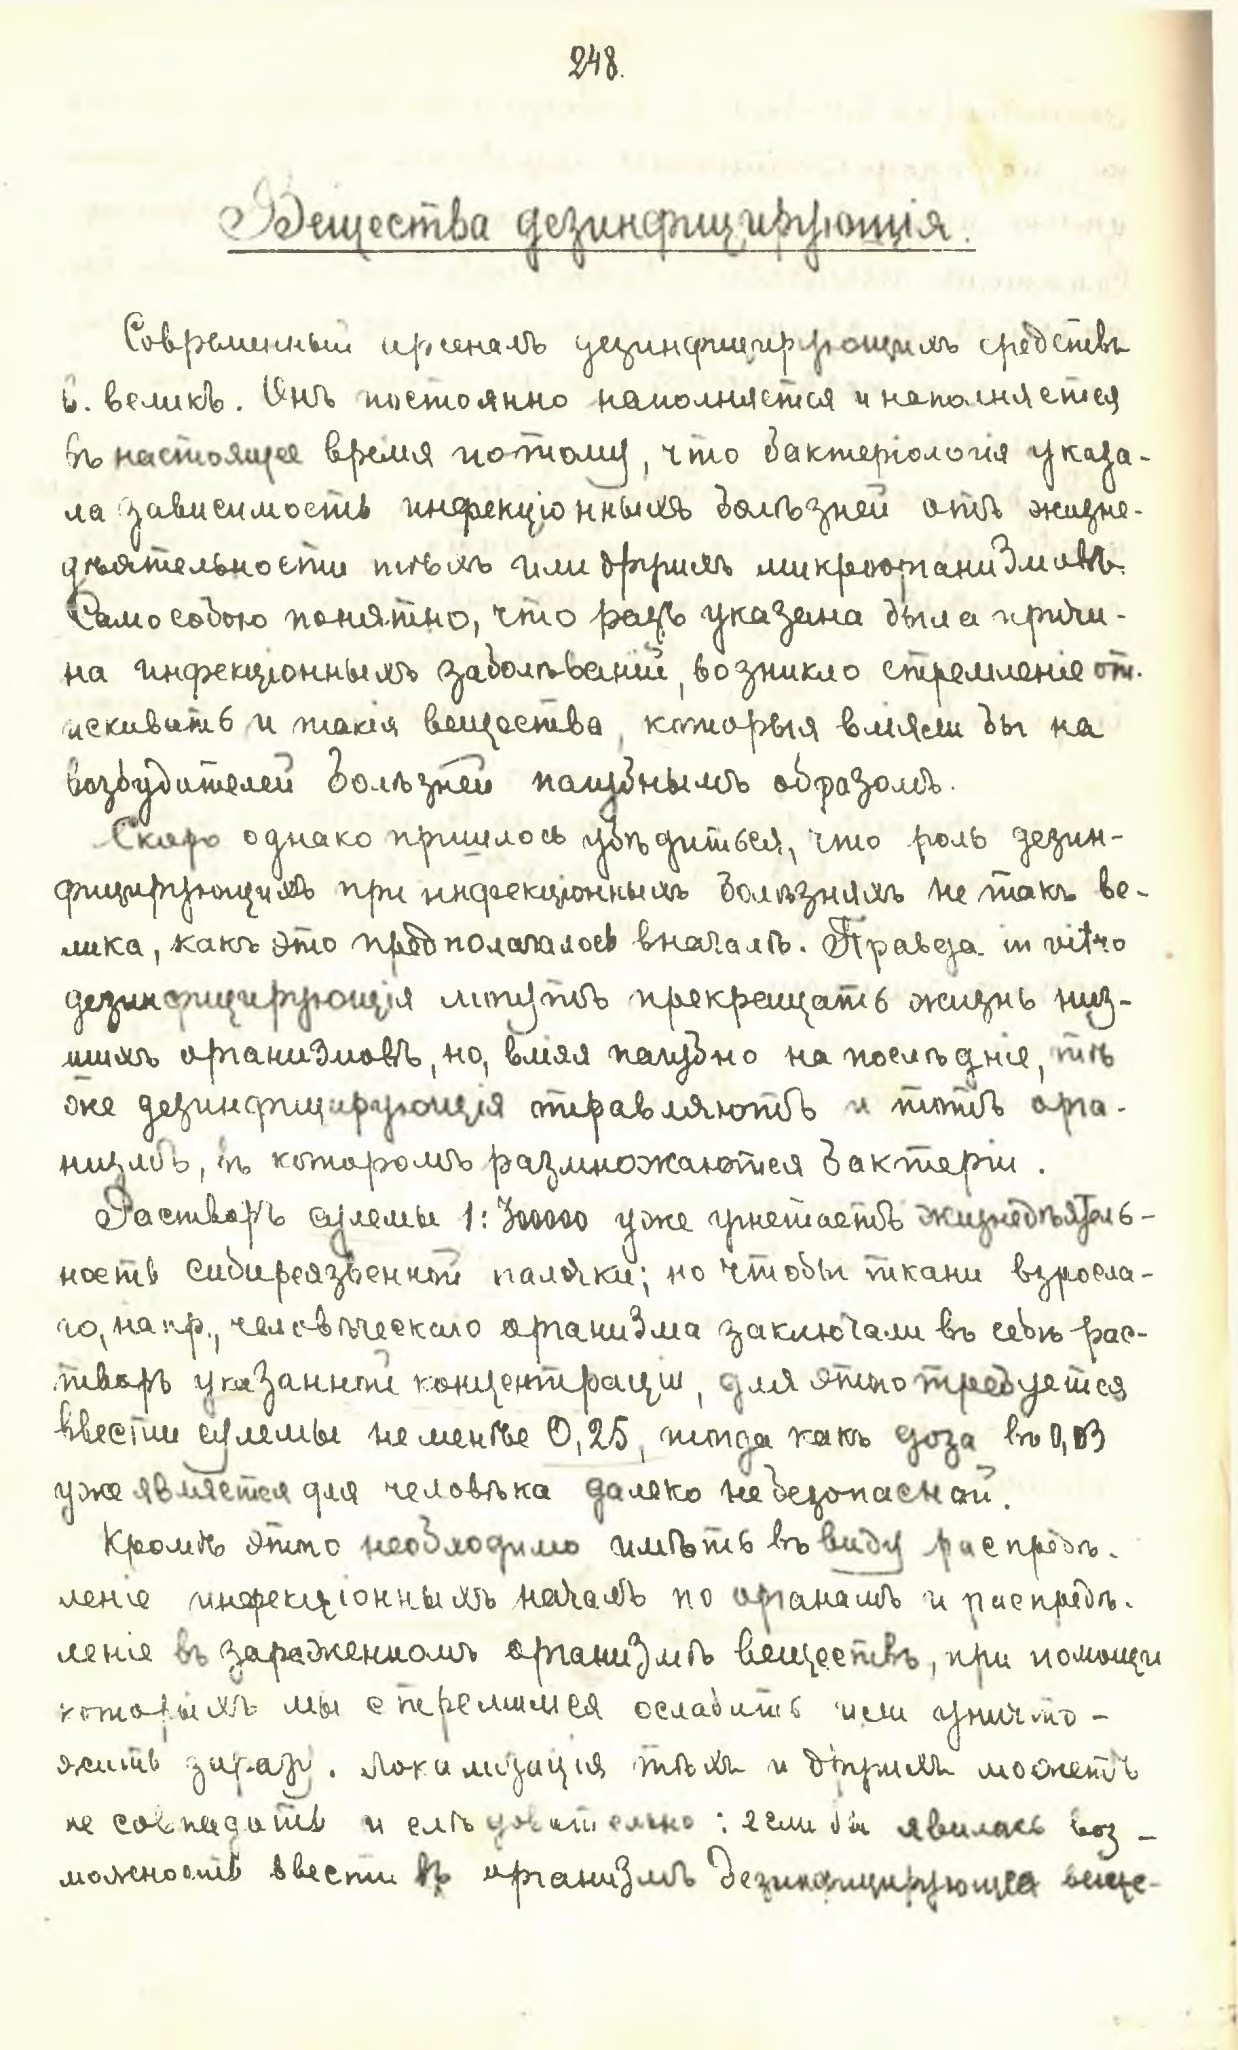 248.
Вещества дезинфицирующія.
Современный арсеналъ дезинфицирующихъ средствъ
б. великъ. Онъ постоянно наполняется и наполняется
въ настоящее время потому, что бактеріологія указа-
ла зависимость инфекціонныхъ болѣзней отъ жизне-
дѣятельности тѣхъ или другихъ микроорганизмовъ.
Само собою понятно, что разъ указана была причи-
на инфекціонныхъ заболѣваній, возникло стремленіе от-
искивать и такія вещества, которыя вліяли бы на
возбудителей болѣзней пагубнымъ образомъ.
Скоро однако пришлось убѣдиться, что роль дезин-
фицирующихъ при инфекціонныхъ болѣзняхъ не такъ ве-
лика, какъ это предполагалось вначалѣ. Правда in vitro
дезинфицирующія могутъ прекращать жизнь низ-
шихъ организмовъ, но, вліяя пагубно на послѣдніе, тѣ
же дезинфицирующія отравляютъ и тотъ орга-
низмъ, въ которомъ размножаются бактеріи.
Растворъ сулемы 1:300000 уже угнетаетъ жизнедѣятель-
ность сибиреязвенной палочки; но чтобы ткани взросла-
го, напр., человѣческаго организма заключали въ себѣ рас-
творъ указанной концентраціи, для этого требуется
ввести сулемы не менѣе 0,25, тогда какъ доза въ 0,03
уже является для человѣка далеко не безопасной.
Кромѣ этого необходимо имѣть въ виду распредѣ-
леніе инфекціонныхъ началъ по органамъ и распредѣ-
леніе въ зараженномъ организмѣ веществъ, при помощи
которыхъ мы стремимся ослабить или уничто-
жить заразу. Локализація тѣхъ и другихъ можетъ
не совпадать и слѣдовательно: если бы явилась воз-
можность ввести въ организмъ дезинфицирующее веще-